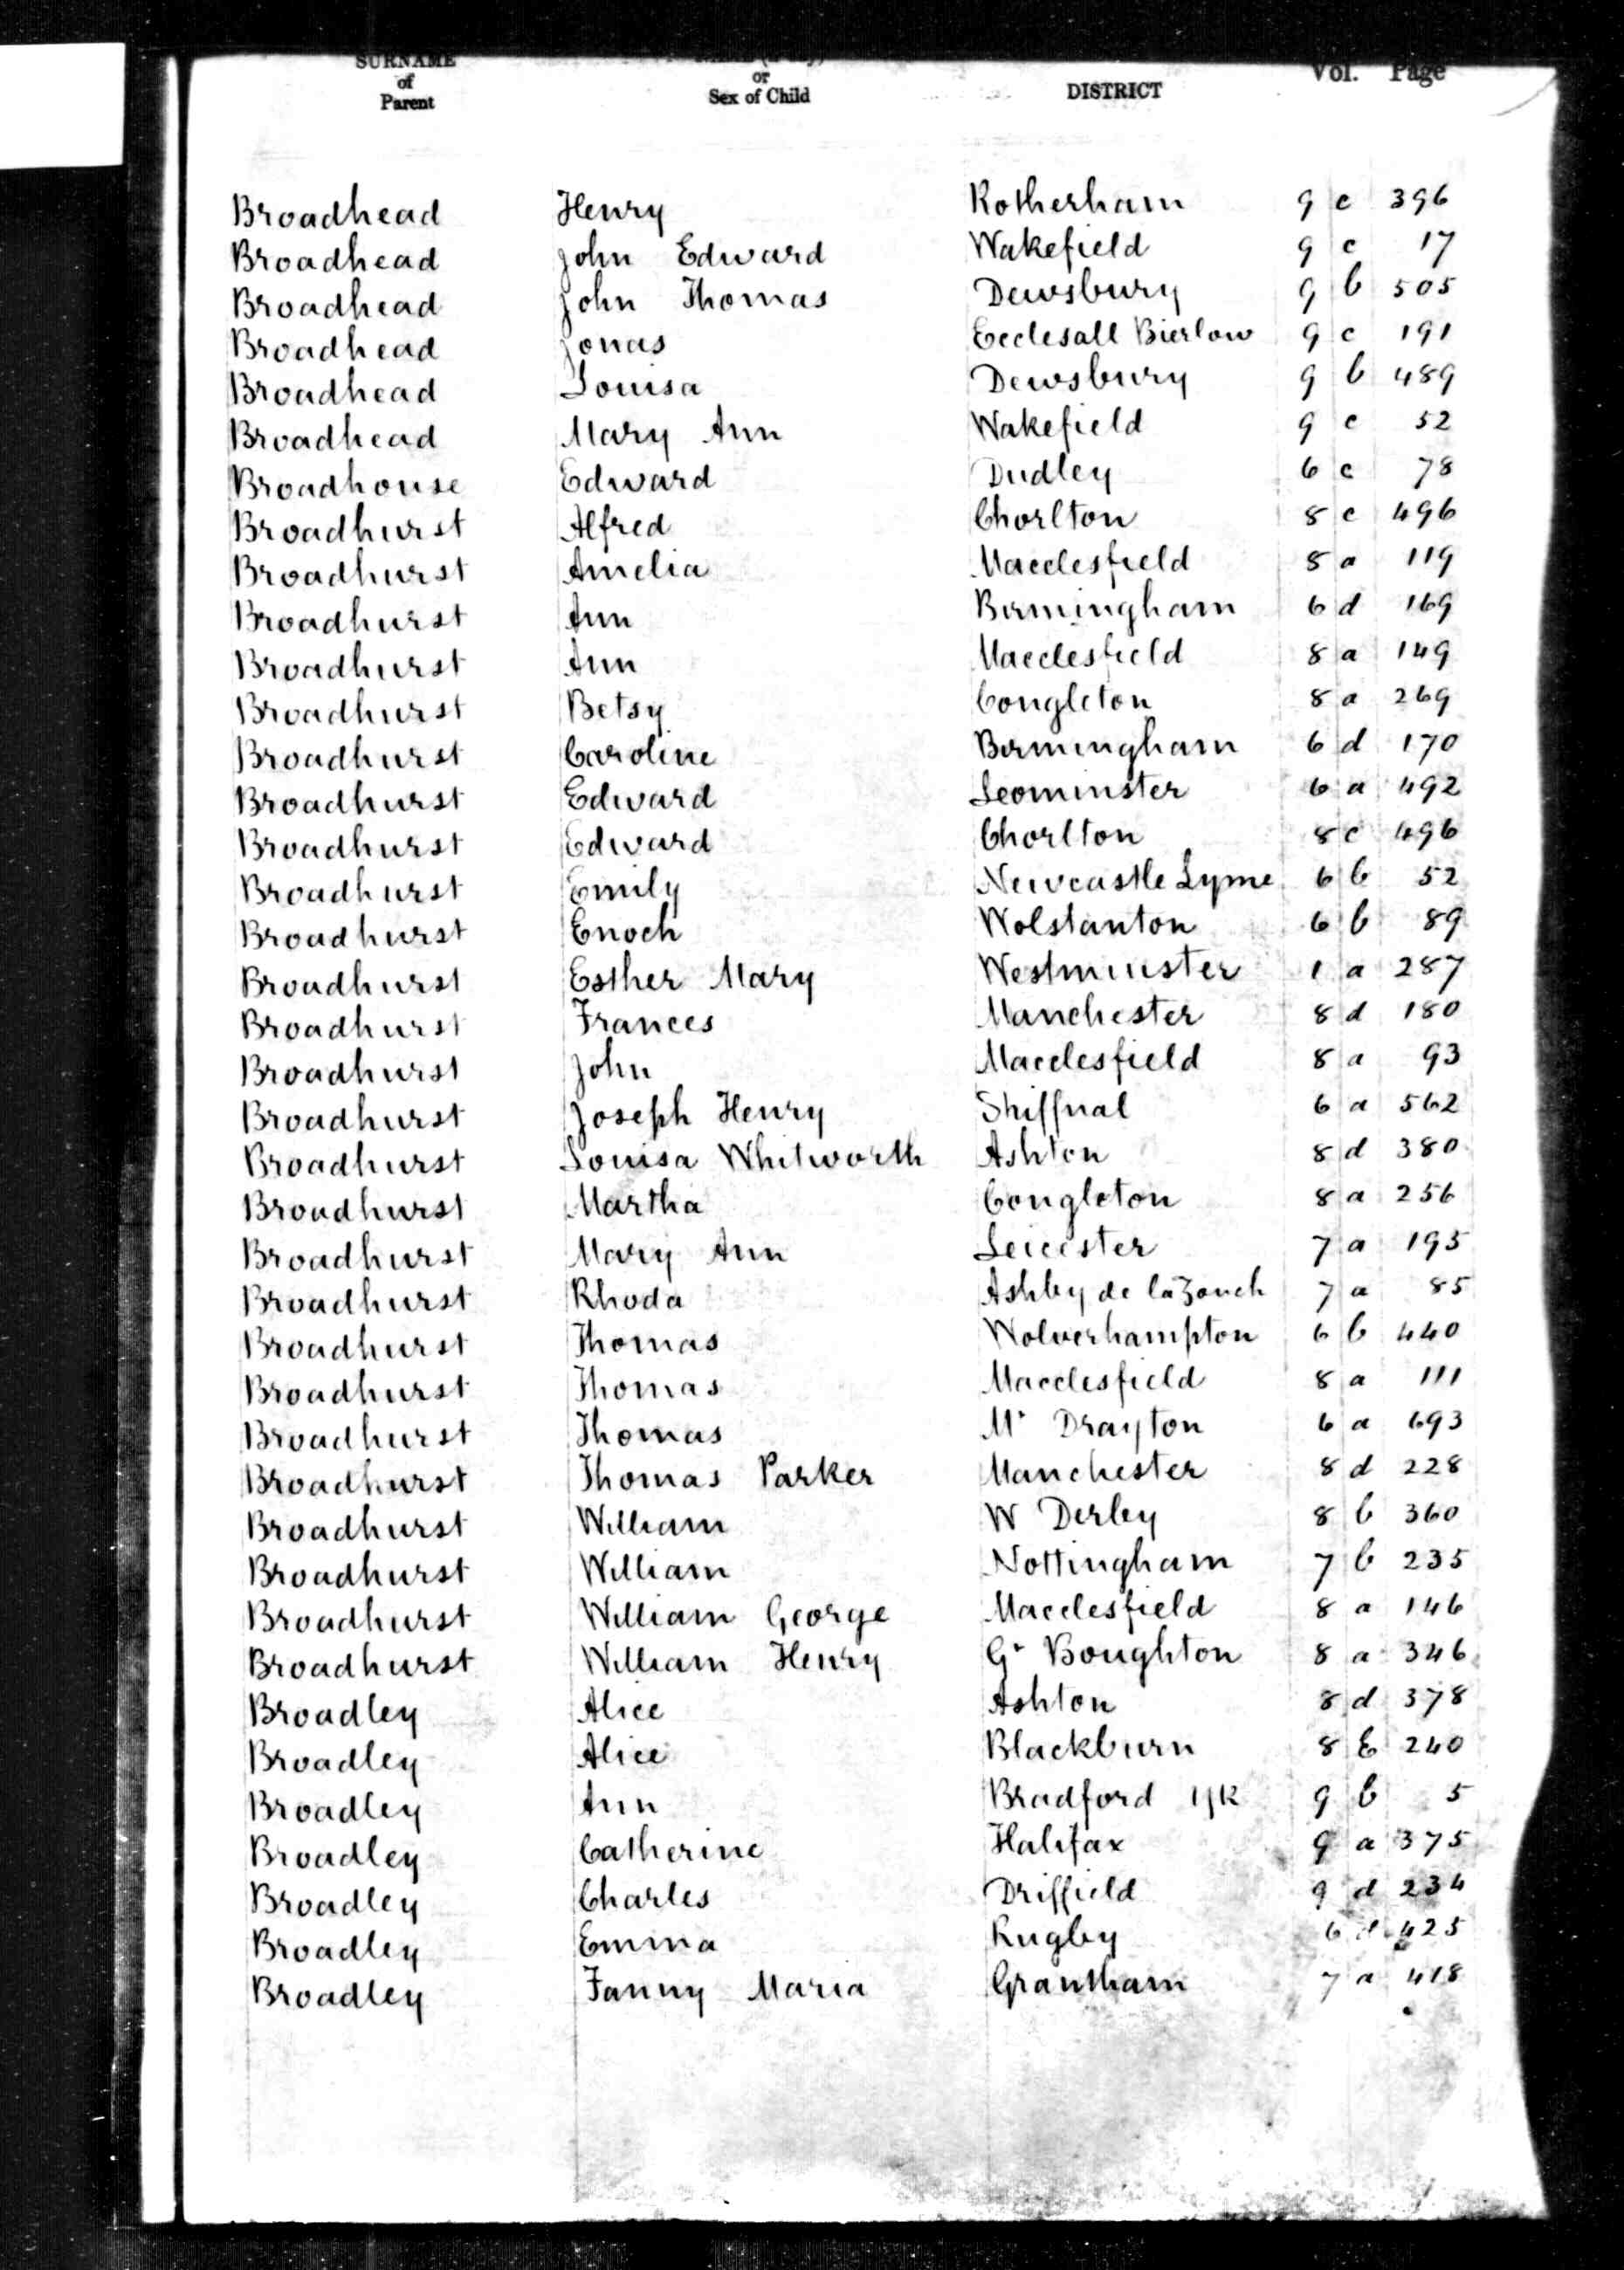 SURNAME of Parent or Sex of Child DISTRICT Vol. Page
Broadhead Henry Rotherham 9 c 396
Broadhead John Edward Wakefield 9 c 17
Broadhead John Thomas Dewsbury 9 b 505
Broadhead Jonas Ecclesall Bierlow 9 c 191
Broadhead Louisa Dewsbury 9 b 489
Broadhead Mary Ann Wakefield 9 c 52
Broadhouse Edward Dudley 6 c 78
Broadhurst Alfred Chorlton 8 c 496
Broadhurst Amelia Macclesfield 8 a 119
Broadhurst Ann Birmingham 6 d 169
Broadhurst Ann Macclesfield 8 a 149
Broadhurst Betsy Congleton 8 a 269
Broadhurst Caroline Birmingham 6 d 170
Broadhurst Edward Leominster 6 a 492
Broadhurst Edward Chorlton 8 c 496
Broadhurst Emily Newcastle Lyme 6 b 52
Broadhurst Enoch Wolstanton 6 b 89
Broadhurst Esther Mary Westminster 1 a 287
Broadhurst Frances Manchester 8 d 180
Broadhurst John Macclesfield 8 a 93
Broadhurst Joseph Henry Shiffnal 6 a 562
Broadhurst Louisa Whitworth Ashton 8 d 380
Broadhurst Martha Congleton 8 a 256
Broadhurst Mary Ann Leicester 7 a 195
Broadhurst Rhoda Ashby de la Zouch 7 a 85
Broadhurst Thomas Wolverhampton 6 b 440
Broadhurst Thomas Macclesfield 8 a 111
Broadhurst Thomas Mt Drayton 6 a 693
Broadhurst Thomas Parker Manchester 8 d 228
Broadhurst William W Derby 8 b 360
Broadhurst William Nottingham 7 b 235
Broadhurst William George Macclesfield 8 a 146
Broadhurst William Henry Gt Boughton 8 a 346
Broadley Alice Ashton 8 d 378
Broadley Alice Blackburn 8 E 240
Broadley Ann Bradford YK 9 b 5
Broadley Catherine Halifax 9 a 375
Broadley Charles Driffield 9 d 234
Broadley Emma Rugby 6 d 425
Broadley Fanny Maria Grantham 7 a 418